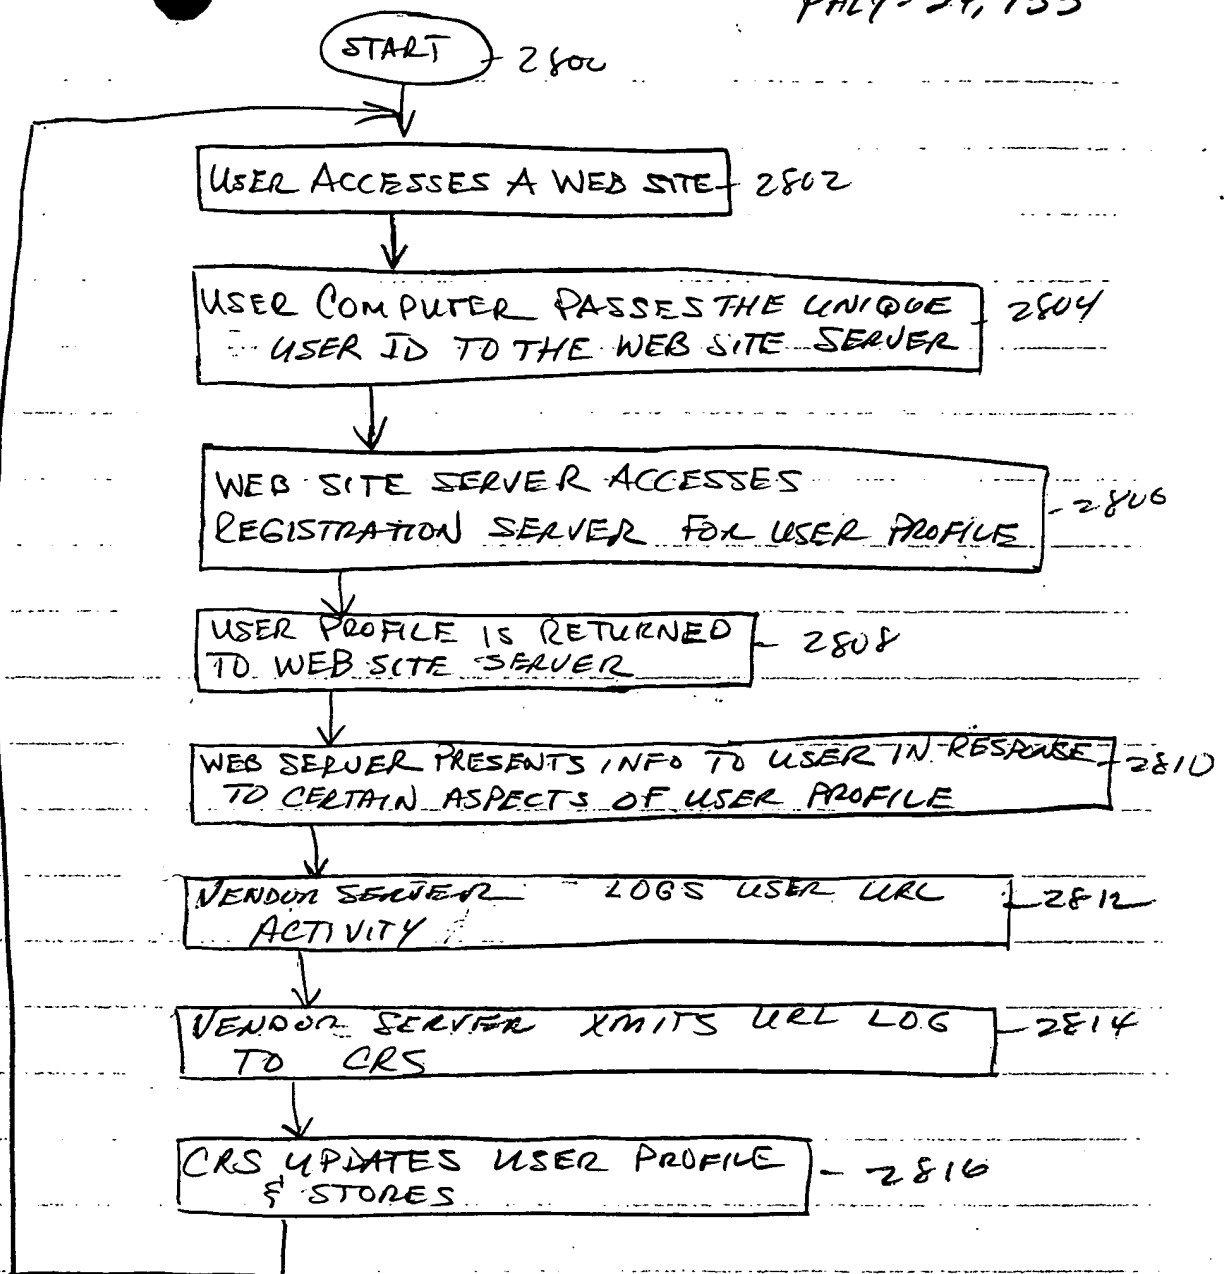 PHLY-24,733
START
2800
USER ACCESSES A WEB SITE
2802
USER COMPUTER PASSES THE UNIQUE
USER ID TO THE WEB SITE SERVER
2804
WEB SITE SERVER ACCESSES
REGISTRATION SERVER FOR USER PROFILE
2806
USER PROFILE IS RETURNED
TO WEB SITE SERVER
2808
WEB SERVER PRESENTS INFO TO USER IN RESPONSE
TO CERTAIN ASPECTS OF USER PROFILE
2810
VENDOR SERVER LOGS USER URL
ACTIVITY
2812
VENDOR SERVER XMITS URL LOG
TO CRS
2814
CRS UPDATES USER PROFILE
& STORES
2816